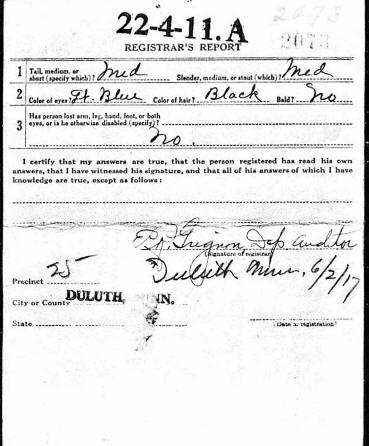 22-4-11. A
REGISTRAR'S REPORT
2073
1 Tall, medium, or short (specify which)? Med Slender, medium, or stout (which)? Med
2 Color of eyes? Lt. Blue Color of hair? Black Bald? No
3 Has person lost arm, leg, hand, foot, or both
eyes, or is he otherwise disabled (specify)?
No.
I certify that my answers are true, that the person registered has read his own
answers, that I have witnessed his signature, and that all of his answers of which I have
knowledge are true, except as follows:
Grignon, Dep Auditor
(Signature of registrar)
Precinct 25 Duluth Minn, 6/2/17
City or County DULUTH, NN.
State (Date of registration)